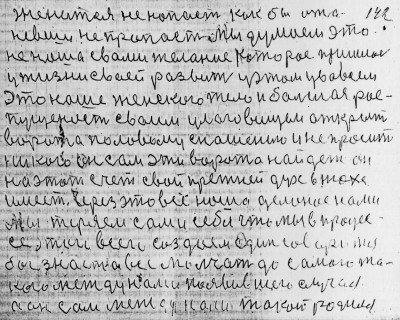 женится не попает как бы ота- 142
неви не пропаст мы думаем это
не наша сваим желание Которое пришлос
у жизни сваей развит
Это наше женского тело и болшая рас-
пущеност сваим влаговищем открыт
ворота половому сношению и не просит
никого он сам эти ворота найдет он
на этот счет свой прежней дух в нюхе
имеет, через это все наше деланое нами
мы теряем сами себя ето мы в процес-
се, этаго всего создаем один говорит на
бы зна а те все молчат до самого та-
кого между нами появившего случая
а он сам между нами такой родился